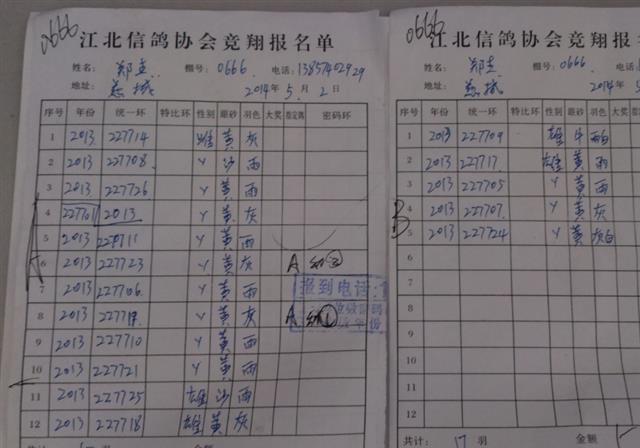 0666 江北信鸽协会竞翔报名单
姓名： 郑 棚号：0666. 电话：13857402929
地址：慈城 2014年5月2日
序号 年份 统一环 特比环 性别 眼砂 羽色 大奖 指定鸽 密码环
1 2013 227714 雄 黄 灰
2 2013 227708 Y 沙 雨
3 2013 227726 Y 黄 雨
4 227701 2013 Y 黄 灰
5 2013 227711 Y 黄 雨
6 2013 227723 Y 黄 灰 A
7 2013 227706 Y 黄 雨
8 2013 Y 黄 灰 A
9 2013 227710 Y 黄 雨
10 2013 227721 Y 黄 雨
11 2013 227725 雄 沙 雨
12 2013 227718 雄 黄 灰
共计： 羽 金额
A
报到电话：
年份
0666 江北信鸽协会竞翔报
姓名： 郑 棚号：0666. 电
地址：慈城 2014年
序号 年份 统一环 特比环 性别 眼砂 羽色 大奖 指定
1 2013 227709 雄 牛
2 2013 227717 雄 黄 雨
3 2013 227705 Y 黄 雨
4 2013 227707 Y 黄 灰
5 2013 227724 Y 黄 灰白
6
7
8
9
10
11
12
共计： 17 羽 金额
B